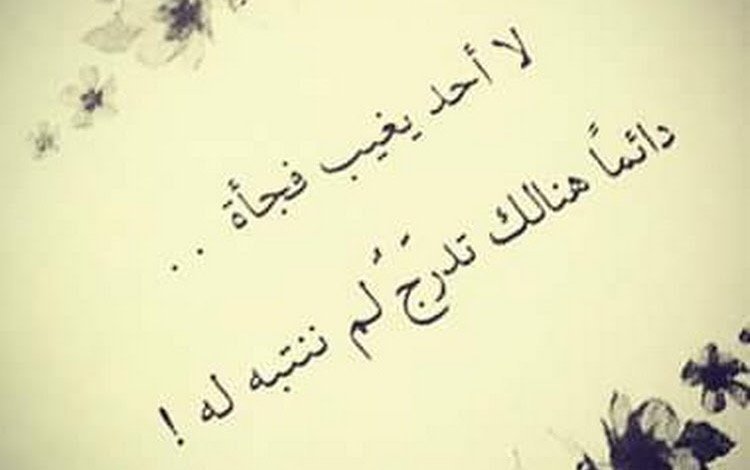 لا أحد يغيب فجأة . .
دائماً هنالك تدرجَ لَم ننتبه له !